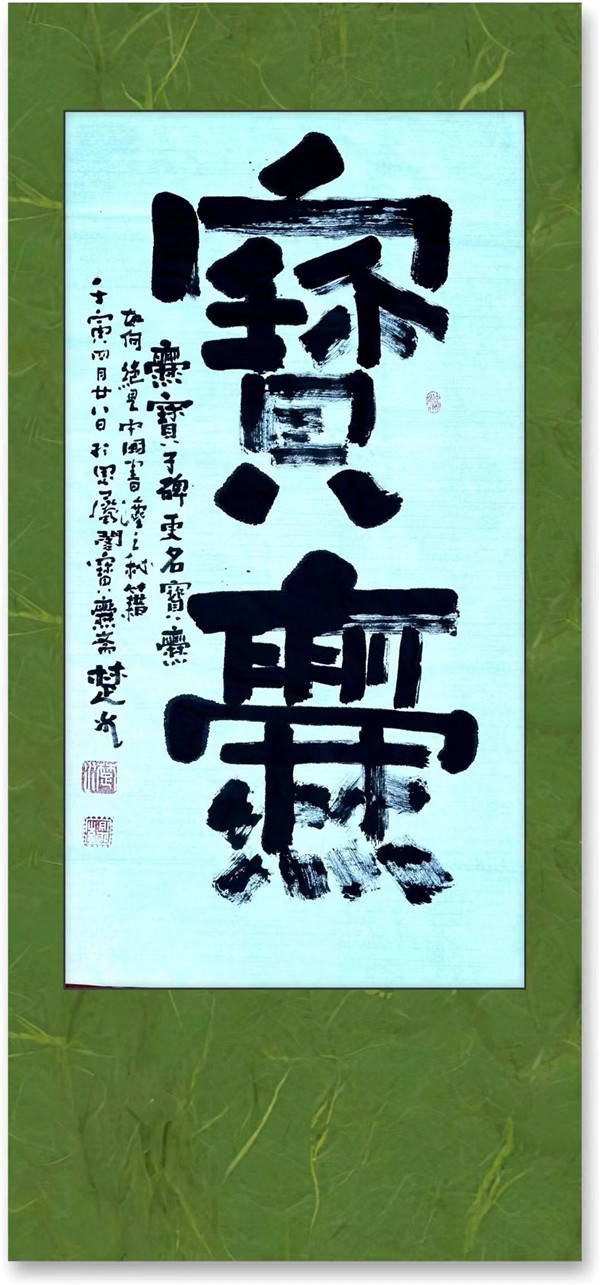 寶爨
爨寶子碑更名寶爨
如何絕是中國書灋之秘籍
壬寅四月廿八日於思閣寶爨斋楚